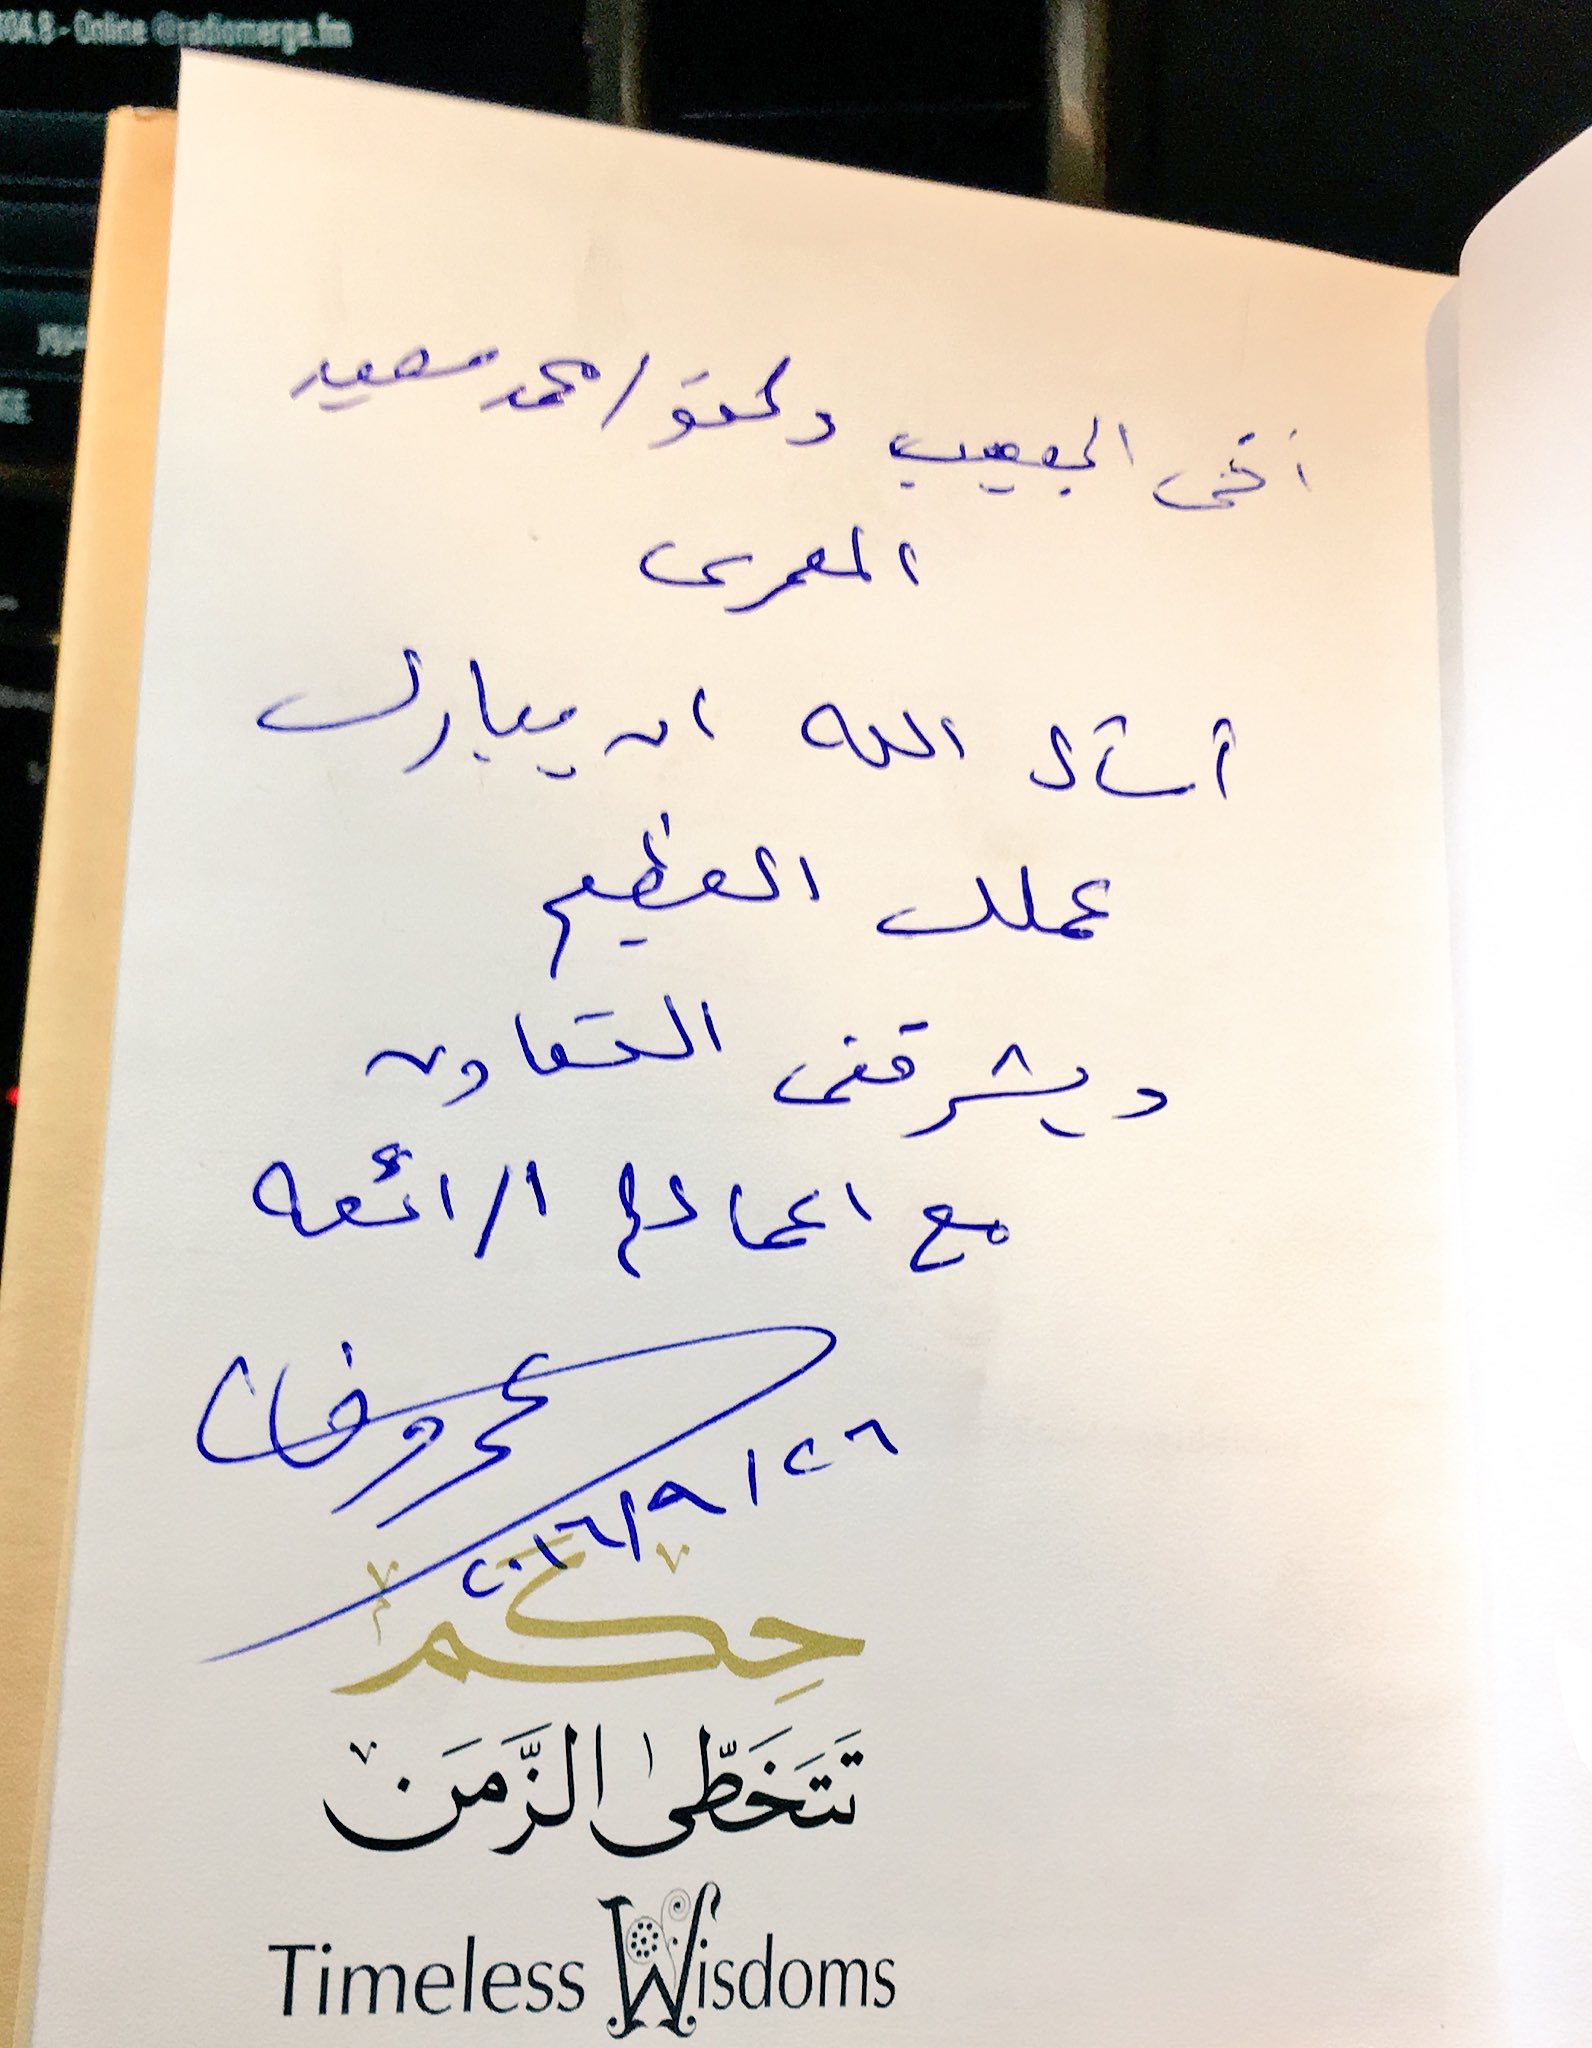 604.8 - Online @radiomerge.fm
أخى الحبيب دكتور / محمد سعيد
المعرى
أسأل الله ان يبارك
عملك العظيم
ويشرفنى التعاون
مع اعمالكم الرائعه
٢٦ / ٩ / ٢٠١٦
حِكَم
تَتَخَطّى الزَّمَن
Timeless Wisdoms